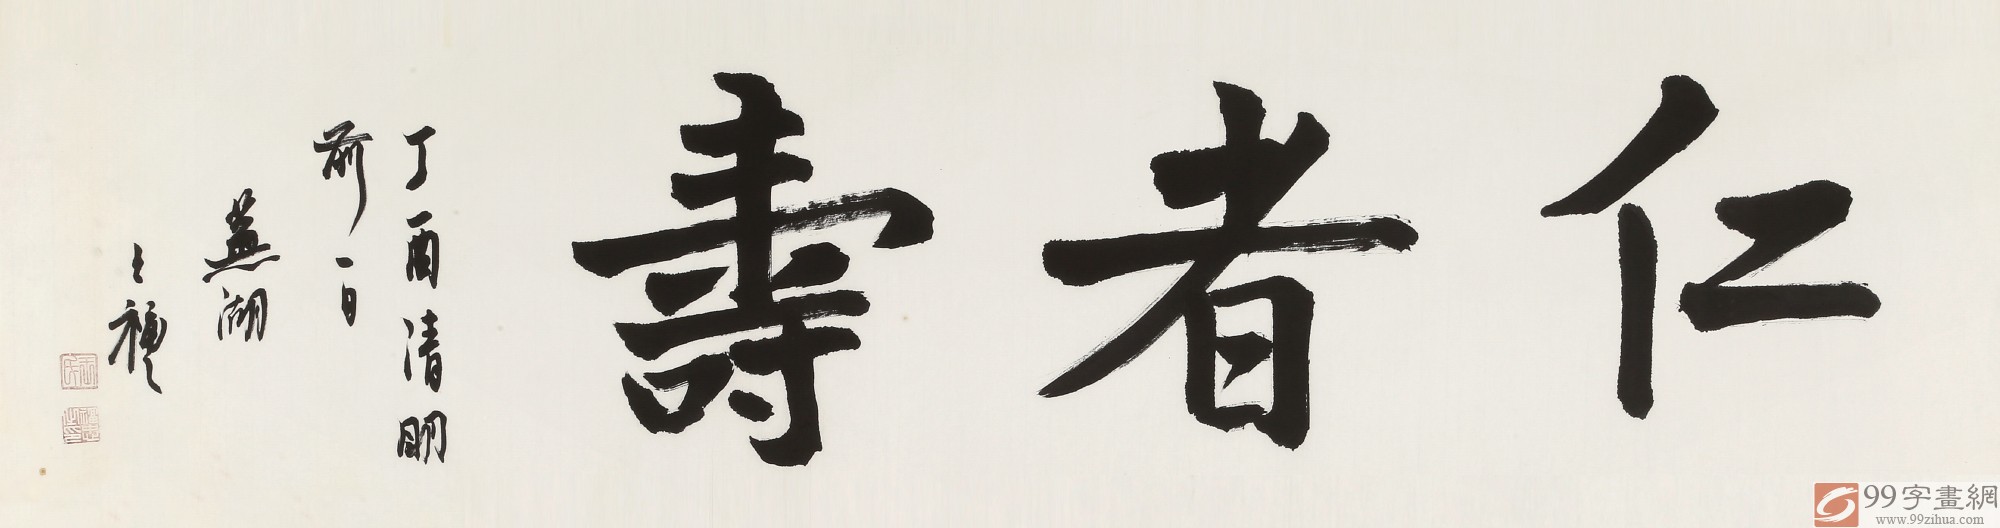 仁者壽
丁酉清明
前一日
蕪湖
99字畫網
www.99zihua.com